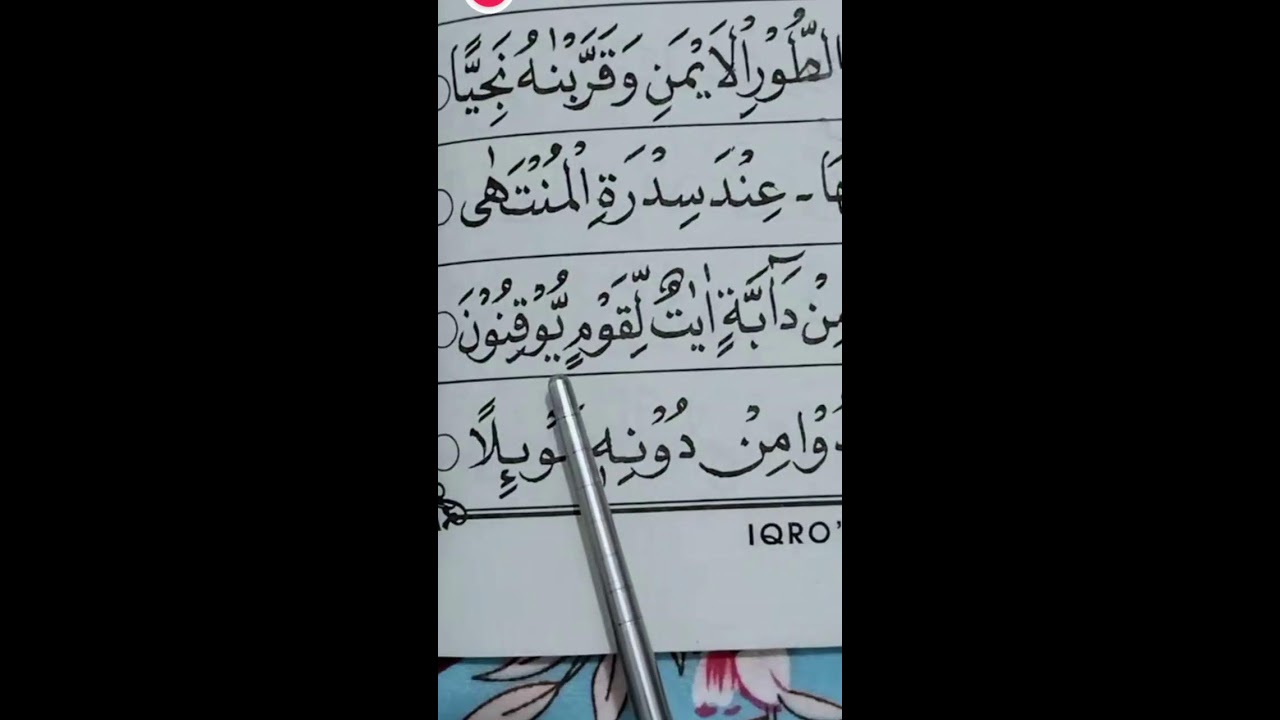 الطُّوْرِ الْاَيْمَنِ وَقَرَّبْنٰهُ نَجِيًّا
هَا - عِنْدَ سِدْرَةِ الْمُنْتَهٰى
مِنْ دَآبَّةٍ اٰيٰتٌ لِّقَوْمٍ يُّوْقِنُوْنَ
دُوْا مِنْ دُوْنِهٖ مَوْىِٕلًا
IQRO'